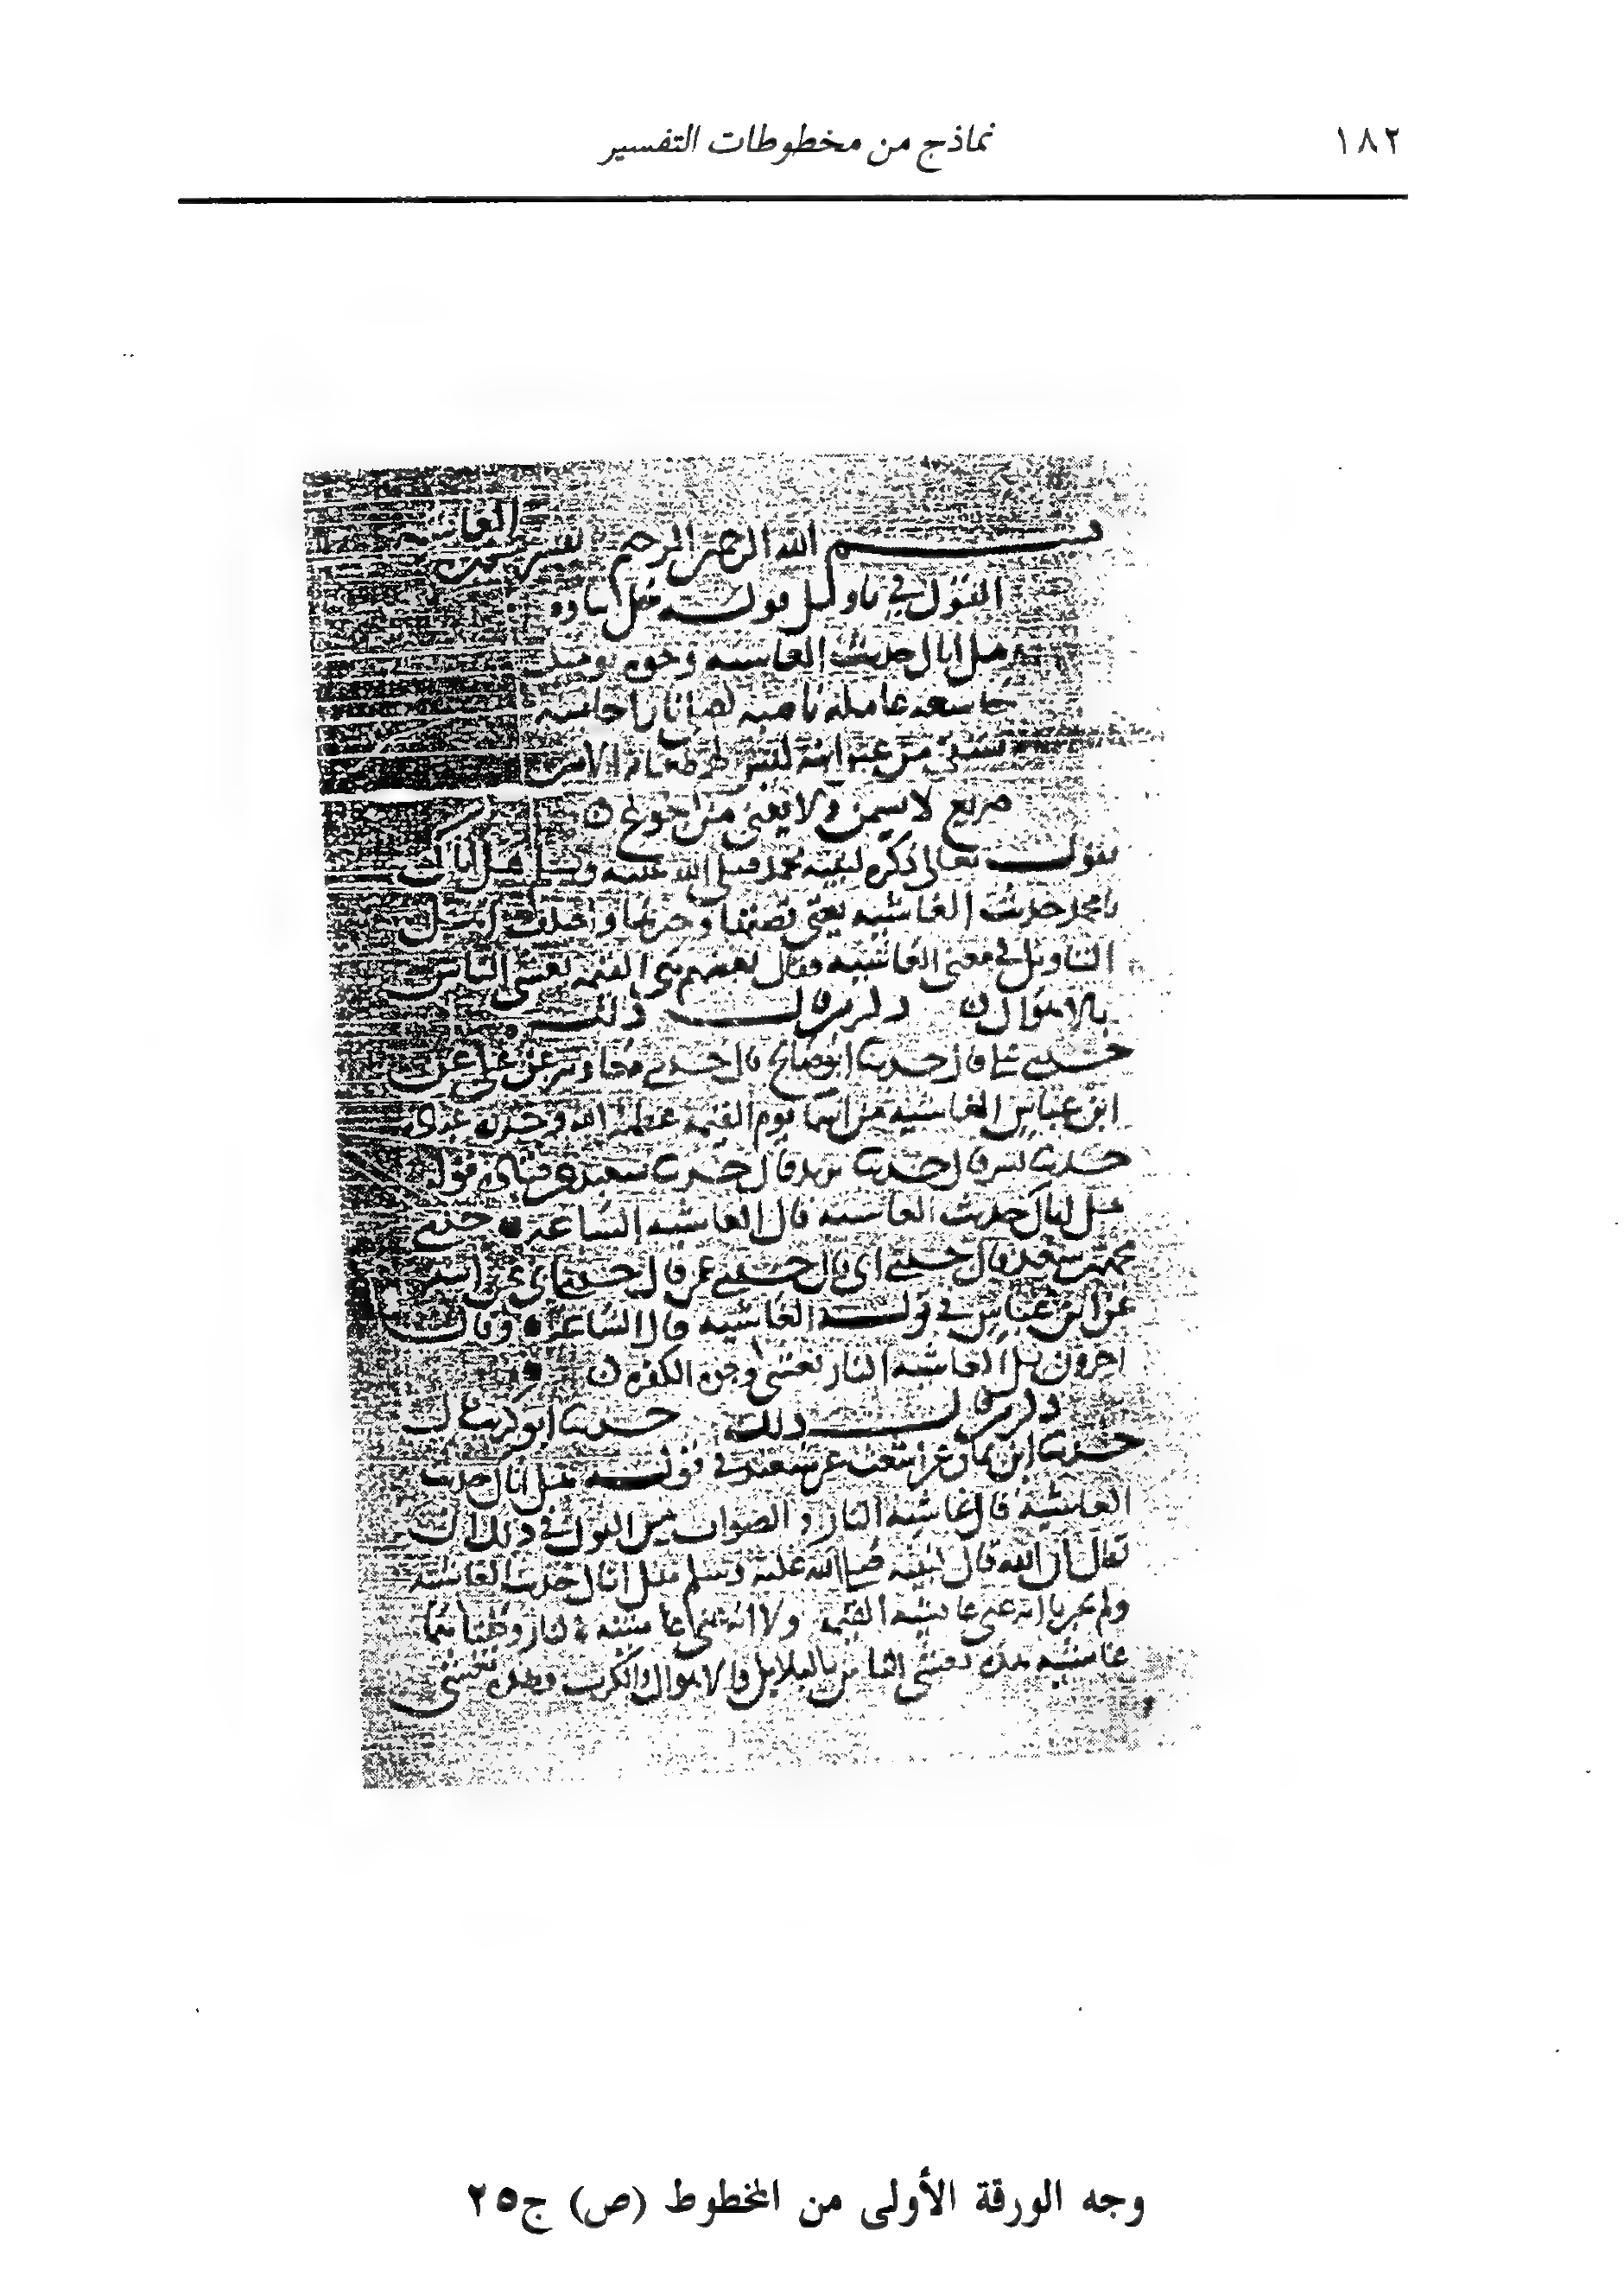 نماذج من مخطوطات التفسير ١٨٢
بسم الله الرحمن الرحيم تفسير الغاشية
القول في تاويل قوله
هل اتاك حديث الغاشيه وجوه يوميذ
خاشعه عامله ناصبه تصلى نارا حاميه
تسقى من عين انيه ليس لهم طعام الا من
ضريع لا يسمن ولا يغني من جوع
يقول تعالى ذكره لنبيه محمد صلى الله عليه وسلم هل اتاك
يا محمد حديث الغاشيه يعني قصتها وخبرها واختلف اهل
التاويل في معنى الغاشيه فقال بعضهم هي القيمه تغشى الناس
بالاهوال ذكر من قال ذلك
حدثني علي قال حدثنا ابو صالح قال حدثني معاويه عن علي عن
ابن عباس الغاشيه من اسما يوم القيمه عظمه الله وحذره عباده
حدثنا بشر قال حدثنا يزيد قال حدثنا سعيد عن قتاده قوله
هل اتاك حديث الغاشيه قال الغاشيه الساعه حدثني
محمد بن سعد قال حدثني ابي قال حدثني عمي قال حدثني ابي عن ابيه
عن ابن عباس في قوله الغاشيه قال الساعه وقال
اخرون بل الغاشيه النار تغشى وجوه الكفره
ذكر من قال ذلك حدثنا ابو كريب قال
حدثنا ابن يمان عن اشعث عن سعيد في قوله هل اتاك حديث
الغاشيه قال غاشيه النار والصواب من القول في ذلك ان
يقال ان الله قال لنبيه صلى الله عليه وسلم هل اتاك حديث الغاشيه
ولم يخبرنا انه عنى غاشيه القيمه ولا انه عنى غاشيه النار وكلتاهما
غاشيه هذه تغشى الناس بالبلايا والاهوال والكرب وهذه تغشى
وجه الورقة الأولى من المخطوط (ص) ج٢٥